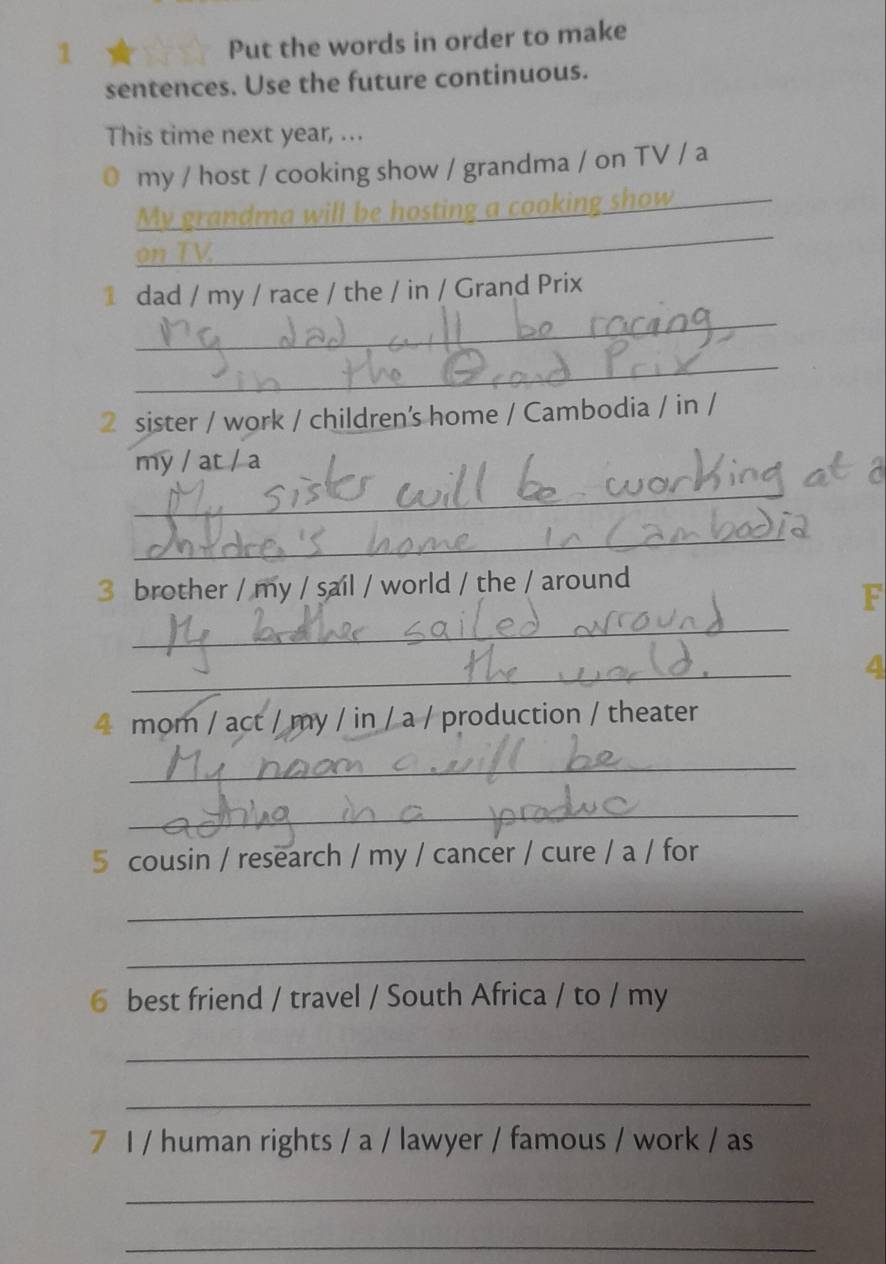 1 Put the words in order to make
sentences. Use the future continuous.
This time next year, ...
0 my / host / cooking show / grandma / on TV / a
My grandma will be hosting a cooking show
on TV.
1 dad / my / race / the / in / Grand Prix
My dad will be racing
in the Grand Prix
2 sister / work / children's home / Cambodia / in /
my / at / a
My sister will be working at a
children's home in Cambodia
3 brother / my / sail / world / the / around
My brother sailed arround
the world.
4 mom / act / my / in / a / production / theater
My mom will be
acting in a produc
5 cousin / research / my / cancer / cure / a / for
6 best friend / travel / South Africa / to / my
7 I / human rights / a / lawyer / famous / work / as
F
4